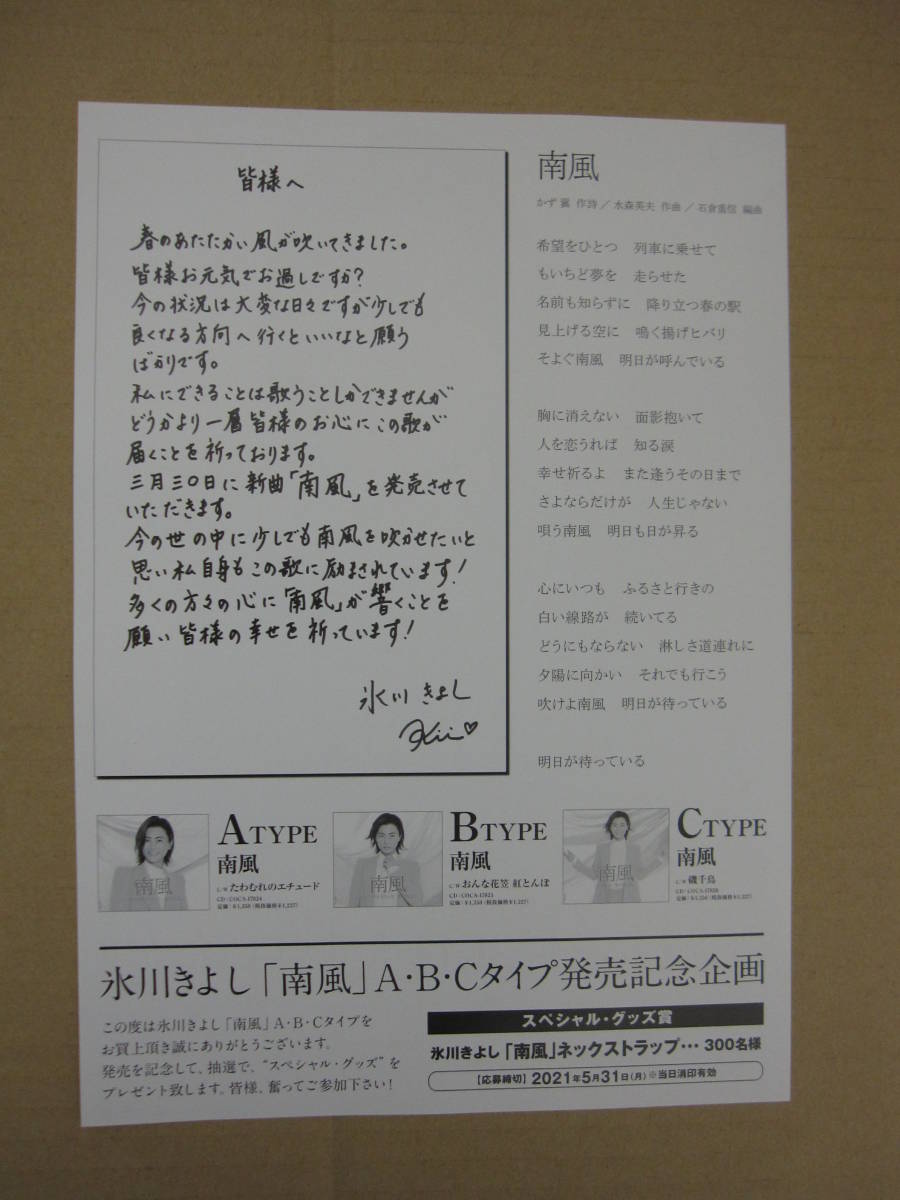 皆様へ
春のあたたかい風が吹いてきました。
皆様お元気でお過しですか?
今の状況は大変な日々ですが少しでも
良くなる方向へ行くといいなと願う
ばかりです。
私にできることは歌うことしかできませんが
どうかより一層皆様のお心にこの歌が
届くことを祈っております。
三月三〇日に新曲「南風」を発売させて
いただきます。
今の世の中に少しでも南風を吹かせたいと
思い私自身もこの歌に励まされています!
多くの方々の心に「南風」が響くことを
願い皆様の幸せを祈っています!
氷川きよし
Kii♡
南風
かず翼 作詩／水森英夫 作曲／石倉重信 編曲
希望をひとつ 列車に乗せて
もいちど夢を 走らせた
名前も知らずに 降り立つ春の駅
見上げる空に 鳴く揚げヒバリ
そよぐ南風 明日が呼んでいる
胸に消えない 面影抱いて
人を恋うれば 知る涙
幸せ祈るよ また逢うその日まで
さよならだけが 人生じゃない
唄う南風 明日も日が昇る
心にいつも ふるさと行きの
白い線路が 続いてる
どうにもならない 淋しさ道連れに
夕陽に向かい それでも行こう
吹けよ南風 明日が待っている
明日が待っている
南風
ATYPE
南風
C/W たわむれのエチュード
CD：COCA-17824
定価：￥1,350（税抜価格￥1,227）
南風
BTYPE
南風
C/W おんな花笠 紅とんぼ
CD：COCA-17825
定価：￥1,350（税抜価格￥1,227）
南風
CTYPE
南風
C/W 磯千鳥
CD：COCA-17826
定価：￥1,350（税抜価格￥1,227）
氷川きよし「南風」A・B・Cタイプ発売記念企画
この度は氷川きよし「南風」A・B・Cタイプを
お買上頂き誠にありがとうございます。
発売を記念して、抽選で、“スペシャル・グッズ”を
プレゼント致します。皆様、奮ってご参加下さい!
スペシャル・グッズ賞
氷川きよし「南風」ネックストラップ… 300名様
【応募締切】2021年5月31日(月)※当日消印有効